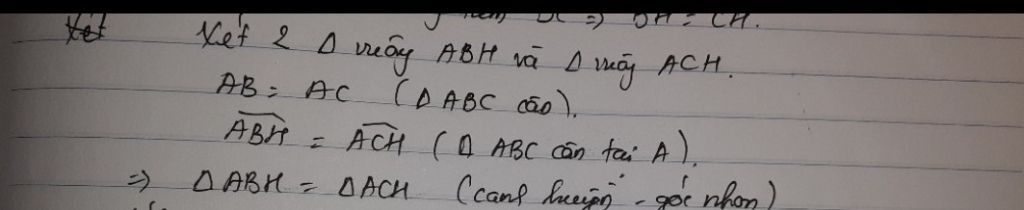 => BH = CH.
Xét 2 Δ vuông ABH và Δ vuông ACH.
AB = AC (Δ ABC cân).
ABH = ACH (Δ ABC cân tại A).
=> Δ ABH = Δ ACH (cạnh huyền - góc nhọn)